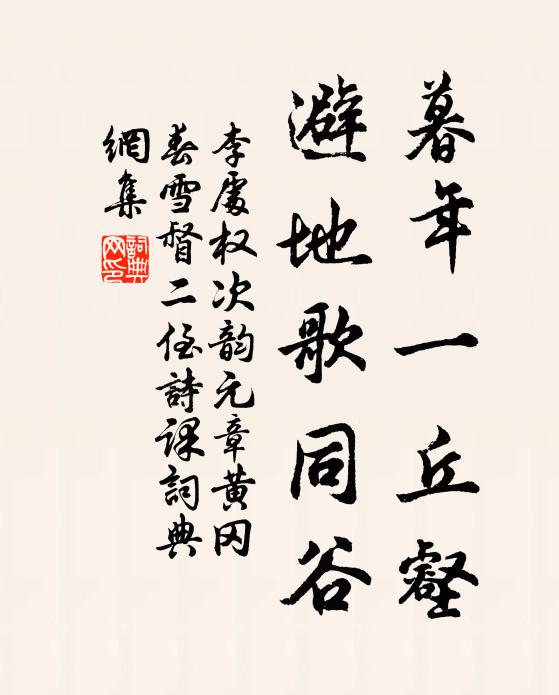 暮年一丘壑
避地歌同谷
李處权次韵元章黄冈
春雪督二侄詩课詞典
網集
詞典
网印